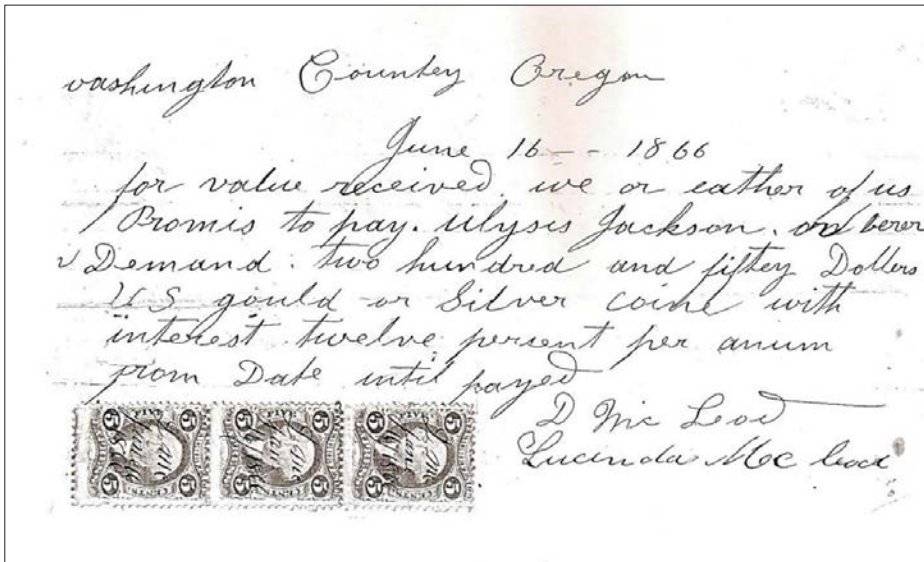 washington County Oregon
June 16 - - 1866
for value received. we or eather of us
Promis to pay. Ulysis Jackson. or berer
Demand. two hundred and fiftey Dollers
U S gould or Silver coine with
interest twelve persent per anum
from Date intil payed
D Mc Leod
Lucinda Mc Leod
5 5 5 5 5 5
CENTS. CENTS. CENTS.